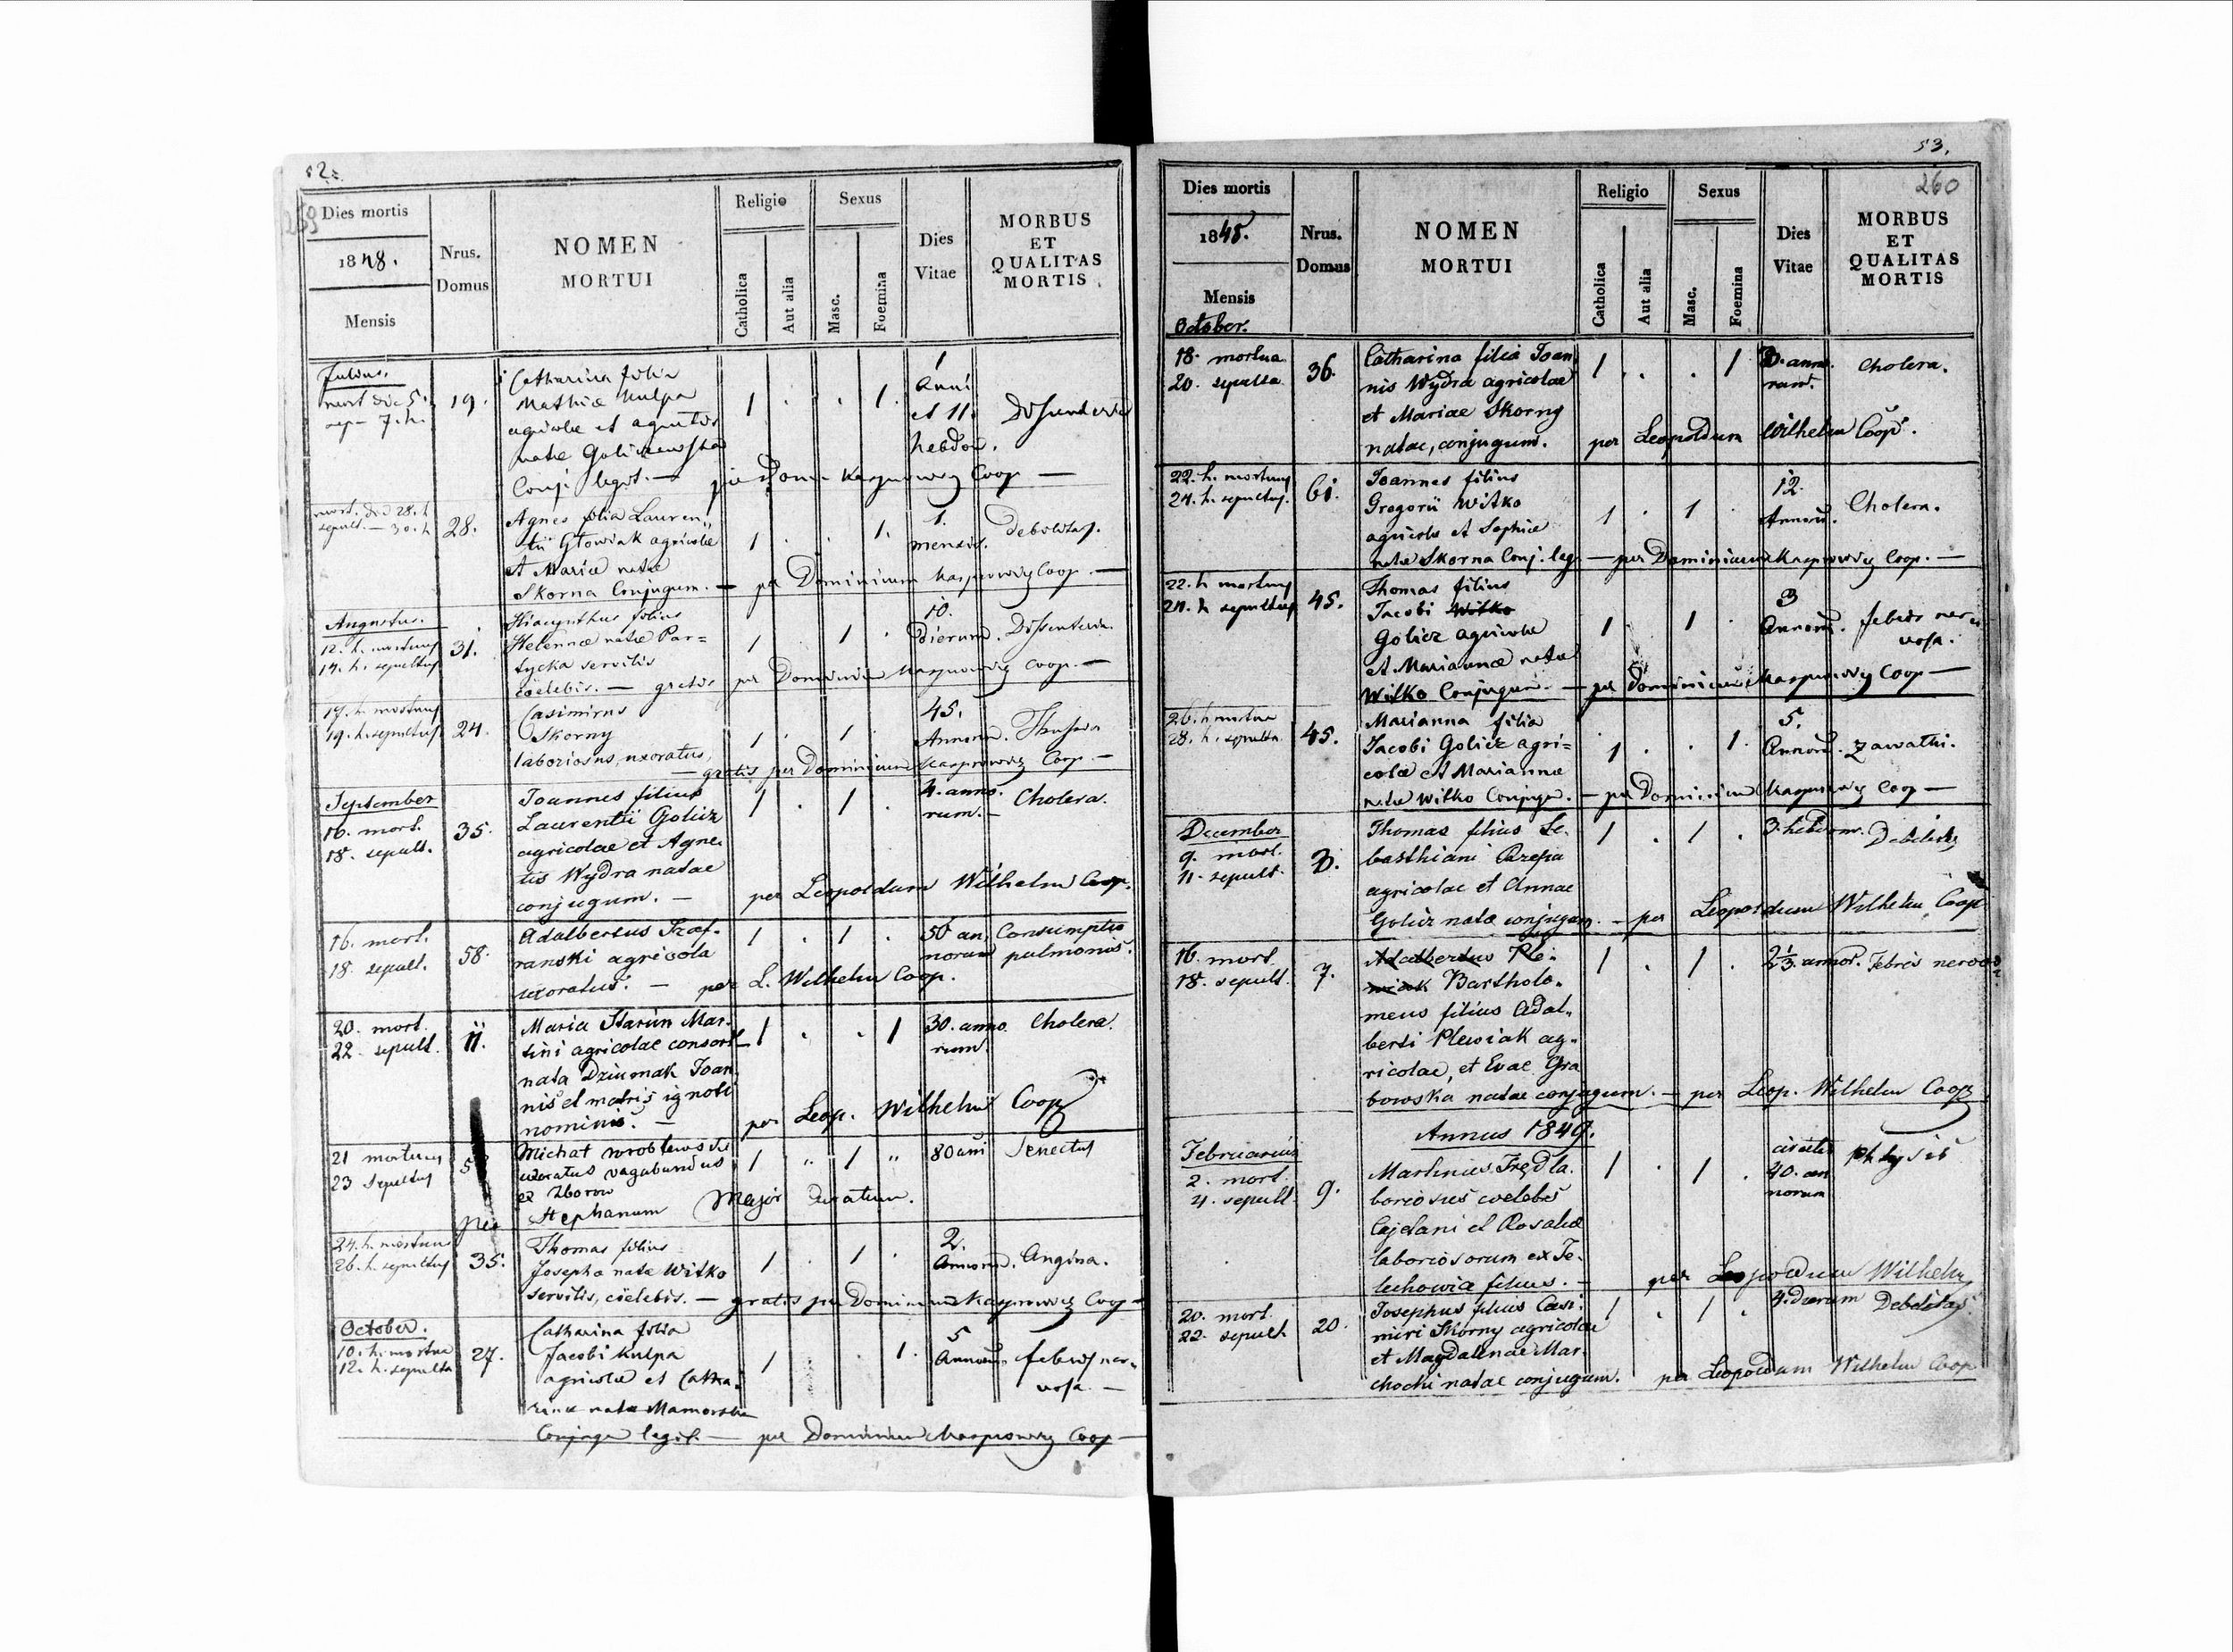 52.
259
Dies mortis
1848.
Mensis
Nrus.
Domus
NOMEN
MORTUI
Religio
Catholica
Aut alia
Sexus
Masc.
Foemina
Dies
Vitae
MORBUS
ET
QUALITAS
MORTIS
Julius.
mort die 5.
sep- 7. h.
19.
Catharina filia
Mathiæ Kulpa
agricolæ et agnetis
natæ Goliszewska
Conj. legit. — per Domi Kasprowicz Coop —
1 . . 1.
1
Anni
et 11.
hebdom.
Dissenteria
mort. die 28. h
sepult. — 30. h
28.
Agnes filia Lauren„
tii Głowiak agricolæ
et Mariæ natæ
Skorna Conjugum. — per Dominicum Kasprowicz Coop. —
1 . . 1.
1.
mensis.
debilitas.
Augustus.
12. h. mortuus
14. h. sepultus
31.
Hiacynthus filius
Helennæ natæ Par=
tycka servilis
cœlebis. — gratis per Dominicum Kasprowicz Coop. —
1 . 1 .
10.
Dierum.
Dissenteria.
17. h. mortuus
19. h. sepultus
24.
Casimirus
Skorny
laboriosus, uxoratus,
— gratis per Dominicum Kasprowicz Coop —
1 . 1 .
45.
Annorum.
September
16. mort.
18. sepult.
35.
Joannes filius
Laurentii Golicz
agricolae et Agne„
tis Wydra natae
conjugum. —
per Leopoldum Wilhelm Coop.
1 . 1 .
4. anno„
rum. —
Cholera.
16. mort.
18. sepult.
58.
Adalbertus Szaf„
ranski agricola
uxoratus. — per L. Wilhelm Coop.
1 . 1 .
50 an„
norum
Consumptio
pulmonis.
20. mort.
22. sepult.
11.
Maria Starun Mar„
tini agricolae consors
nata Dziumak Joan„
nis et matris ignoti
nominis. —
per Leop. Wilhelm Coop
1 . . 1
30. anno„
rum.
Cholera.
21 mortuus
23 sepultus
Michał wroblewski
uxoratus vagabundus
ex Zborow
per Stephanum Major Curatum.
1 „ 1 „
80 ani
Senectus
24. h. mortuus
26. h. sepultus
35.
Thomas filius
Josepha natæ Witko
servilis, cœlebis. — gratis per Dominicum Kasprowicz Coop —
1 . 1 .
2.
Annorum.
Angina.
October.
10. h. mortua
12. h. sepulta
27.
Catharina filia
Jacobi Kulpa
agricolæ et Catha„
rinæ natæ Mamorska
Conjugu legit. — per Dominicum Kasprowicz Coop —
1 . . 1.
5
Annorum.
febris ner„
vosa. —
53.
260
Dies mortis
1848.
Mensis
October.
Nrus.
Domus
NOMEN
MORTUI
Religio
Catholica
Aut alia
Sexus
Masc.
Foemina
Dies
Vitae
MORBUS
ET
QUALITAS
MORTIS
18. mortua
20. sepulta
36.
Catharina filia Joan„
nis Wydra agricolae
et Mariae Skorny
natae, conjugum. per Leopoldum Wilhelm Coop.
1 . . 1
3. anno„
rum.
Cholera.
22. h. mortuus
24. h. sepultus.
61.
Joannes filius
Gregorii Witko
agricolæ et Sophiæ
natæ Skorna Conj. leg. — per Dominicum Kasprowicz Coop. —
1 . 1 .
12.
Annorum.
Cholera.
22. h mortuus
24. h sepultus
45.
Thomas filius
Jacobi Witko
Golicz agricolæ
et Mariannæ natæ
Witko Conjugum. — per Dominicum Kasprowicz Coop —
1 . 1 .
3
Annorum.
febris ner„
vosa.
26. h mortua
28. h. sepulta.
45.
Marianna filia
Jacobi Golicz agri=
colæ et Mariannæ
natæ Witko Conjugu. — per Dominicum Kasprowicz Coop —
1 . . 1.
5.
Annorum.
December
9. mort.
11. sepult.
3.
Thomas filius Se„
basthiani Rzepa
agricolae et Annae
Golicz natæ conjugum. — per Leopoldum Wilhelm Coop
1 . 1 .
3. hebdom.
Debilitas
16. mort.
18. sepult.
7.
Adalbertus Ple„
wiak Bartholo„
meus filius Adal„
berti Plewiak ag„
ricolae, et Evae Gra
bowska natae conjugum. — per Leop. Wilhelm Coop
1 . 1 .
2⅓ annor.
Febris nervosa
Annus 1849.
Februarius
2. mort.
4. sepult.
9.
Martinus Fręd la„
boriosus coelebs
Cajetani et Rosaliæ
laboriosorum ex Te„
lechowia filius. — per Leopoldum Wilhelm
1 . 1 .
circiter
40. an
norum
phtysis
20. mort.
22. sepult.
20.
Josephus filius Casi„
miri Skorny agricolae
et Magdalenae Mar„
chocki natae conjugum. per Leopoldum Wilhelm Coop
1 . 1 .
4. dierum
Debilitas.